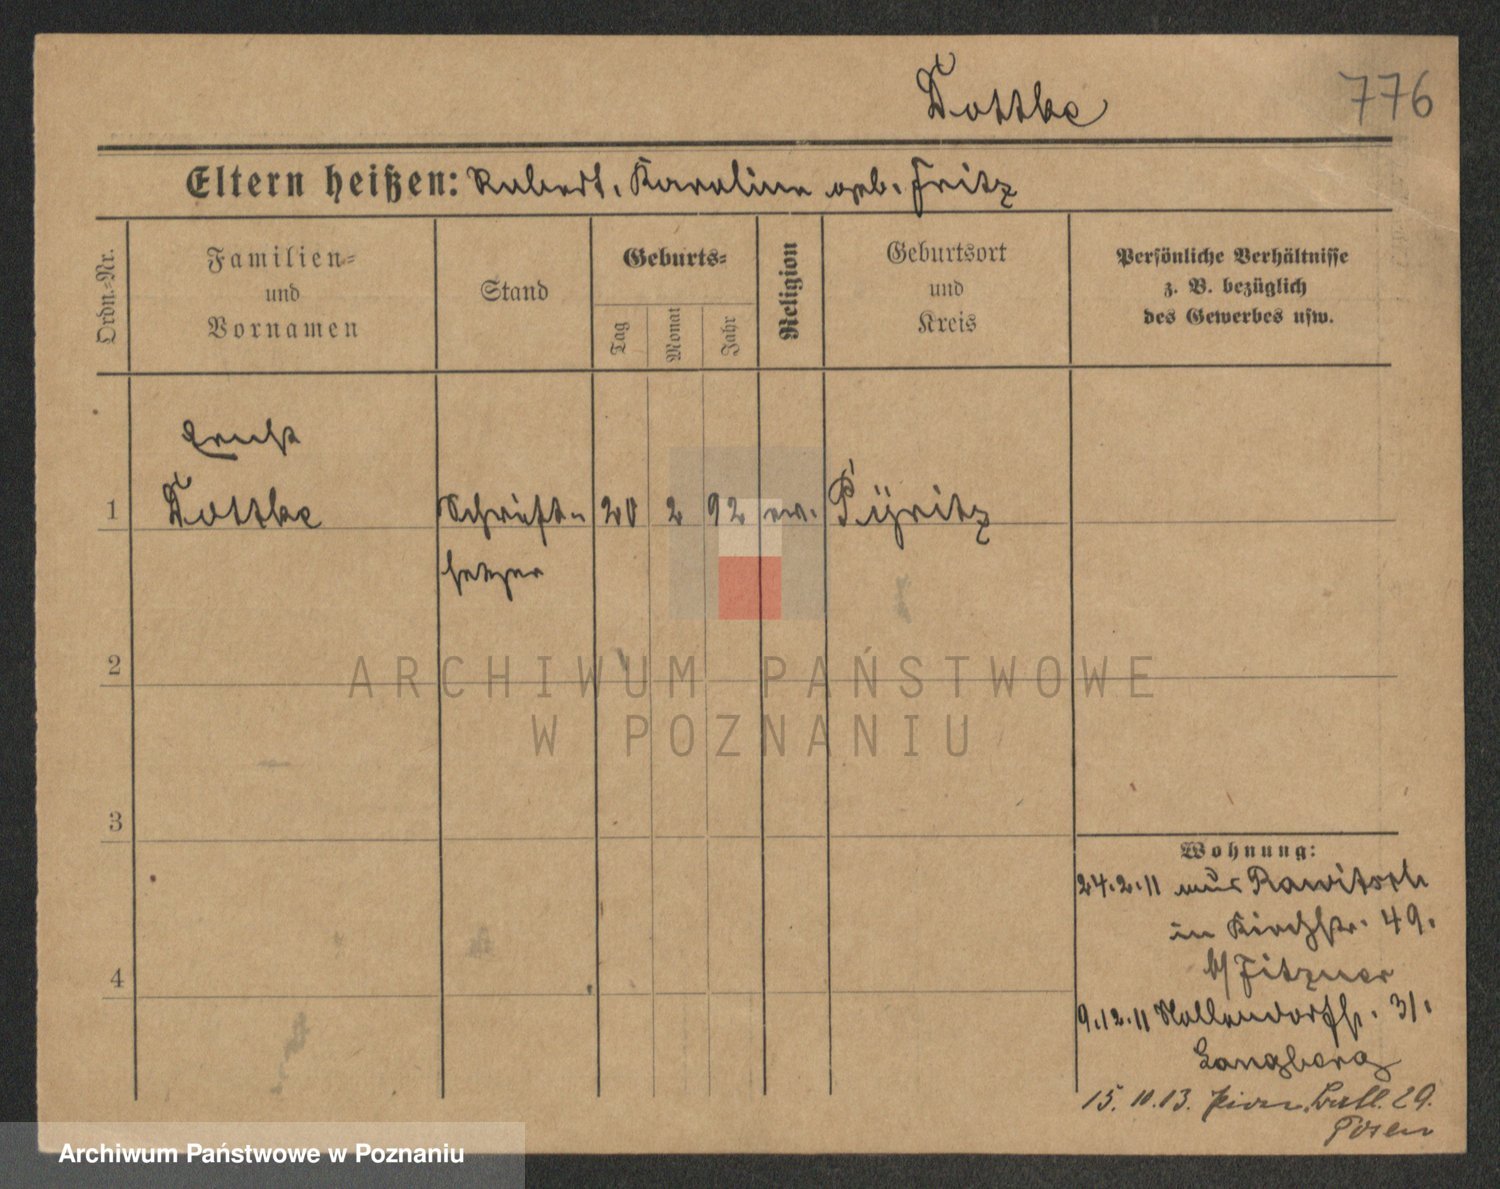 Tottke
776
Eltern heißen: Robert, Karoline geb. Fritz
Ordn.-Nr.
Familien-
und
Vornamen
Stand
Geburts-
Tag
Monat
Jahr
Religion
Geburtsort
und
Kreis
Persönliche Verhältnisse
z. B. bezüglich
des Gewerbes usw.
Ernst
1 Tottke Schrift- 20 2 92 ev. Pyritz
setzer
2
ARCHIWUM PAŃSTWOWE
W POZNANIU
3
4
Wohnung:
24.2.11 aus Rawitsch
in Kirchstr. 49.
b/ Fitzner
9.12.11 Nollendorfstr. 31.
Langberg
15. 10. 13. 29.
Posen
Archiwum Państwowe w Poznaniu